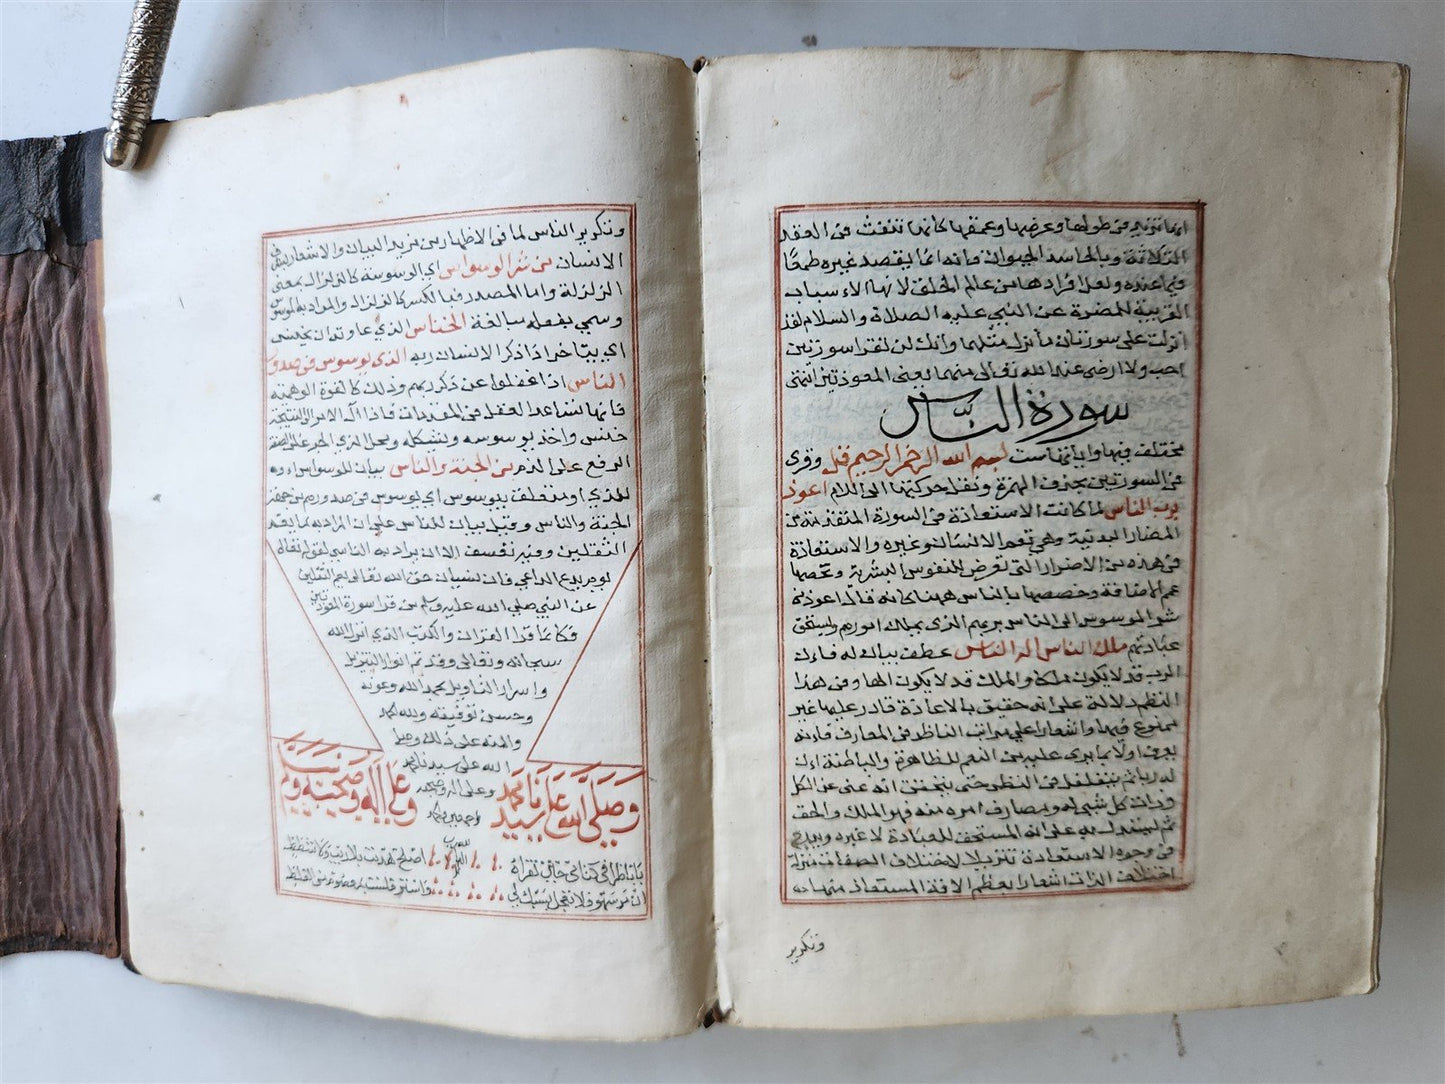 انها تؤثر في طولها وعرضها وعمقها كانها تنفث في العقد
الثلاثة وبالحاسد الحيوان فانه انما يقصد غيره طمعا
فيما عنده ولعل افرادها من عالم الخلق لانها الاسباب
القريبة للمضرة عن النبي عليه الصلاة والسلام لقد
انزلت علي سورتان ما انزل مثلهما وانك لن تقرا سورتين
احب ولا ارضى عند الله تعالى منهما يعني المعوذتين انتهى
سورة الناس
مختلف فيها وايها ست بسم الله الرحمن الرحيم قل وقرى
في السورتين بحذف الهمزة ونقل حركتها الى اللام اعوذ
برب الناس لما كانت الاستعاذة في السورة المتقدمة من
المضار البدنية وهي تعم الانسان وغيره والاستعاذة
في هذه من الاضرار التي تعرض للنفوس البشرية وتخصها
عمم الاضافة وخصصها بالناس ههنا كانه قال اعوذ من
شر الموسوس الى الناس بربهم الذي يملك امورهم ويستحق
عبادتهم ملك الناس اله الناس عطف بيان له فان
الرب قد لا يكون ملكا والملك قد لا يكون الها وفي هذا
النظم دلالة على انه حقيق بالاعاذة قادر عليها غير
ممنوع عنها واشعار على مراتب الناظر في المعارف فانه
يعرف اولا بما يرى عليه من النعم الظاهرة والباطنة ان
له ربا ثم يتغلغل في النظر حتى يتحقق انه غني عن الكل
وذات كل شيء له ومصارف امره منه فهو الملك الحق
ثم يستدل به على انه المستحق للعبادة لا غيره ويدرج
في وجوه الاستعاذة تنزيلا لاختلاف الصفات منزلة
اختلاف الذات اشعارا بعظم الافة المستعاذ منها
وتكرير
وتكرير الناس لما في الاظهار من مزيد البيان والاشعار بشرف
الانسان من شر الوسواس اي الوسوسة كالزلزال بمعنى
الزلزلة واما المصدر فبالكسر كالزلزال والمراد به الموسوس
وسمي بفعله مبالغة الخناس الذي عادته ان يخنس
اي يتاخر اذا ذكر الانسان ربه الذي يوسوس في صدور
الناس اذا غفلوا عن ذكر ربهم وذلك كالقوة الوهمية
فانها تساعد العقل في المقدمات فاذا آل الامر الى النتيجة
خنس واخذ يوسوسه ويشككه ومحل الذي الجر على الصفة
الرفع على الذم من الجنة والناس بيان للوسواس او
للذي او متعلق بيوسوس اي يوسوس في صدورهم من جهة
الجنة والناس وقيل بيان للناس على ان المراد به ما يعم
الثقلين وفيه تعسف الا ان يراد به الناسي كقوله تعالى
يوم يدع الداعي فان نسيان حق الله تعالى يعم الثقلين
عن النبي صلى الله عليه وسلم من قرا سورة المعوذتين
فكانما قرا القران والكتب الذي انزل الله
سبحانه وتعالى وقد تم انوار التنزيل
واسرار التاويل بحمد الله وعونه
وحسن توفيقه ولله الحمد
والمنة على ذلك وصلى
الله على سيدنا محمد
وعلى اله وصحبه
وصلى الله على سيدنا محمد وعلى اله وصحبه وسلم
يا ناظرا في كتابي حين تقراه اصلح
ان مر سهو فلا تعجل بسبك لي